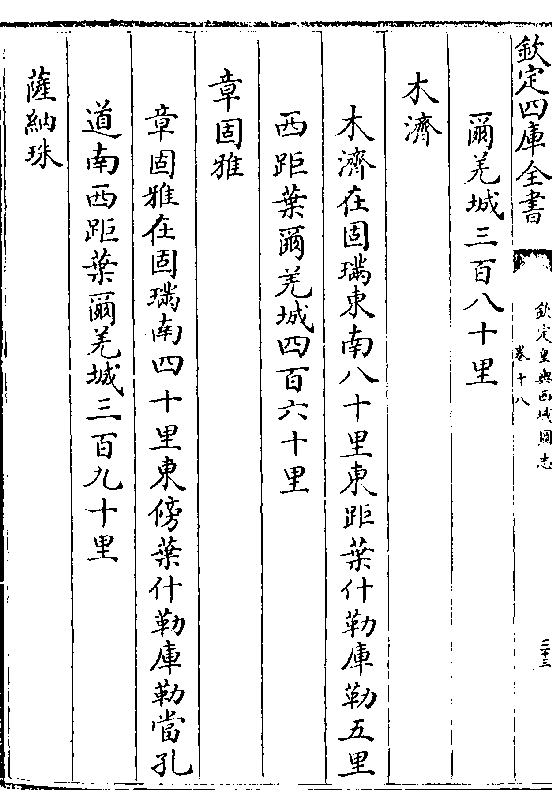 欽定四庫全書
欽定皇輿西域圖志
卷十八
二十三
爾羌城三百八十里
木濟
木濟在固璊東南八十里東距葉什勒庫勒五里
西距葉爾羌城四百六十里
章固雅
章固雅在固璊南四十里東傍葉什勒庫勒當孔
道南西距葉爾羌城三百九十里
薩納珠